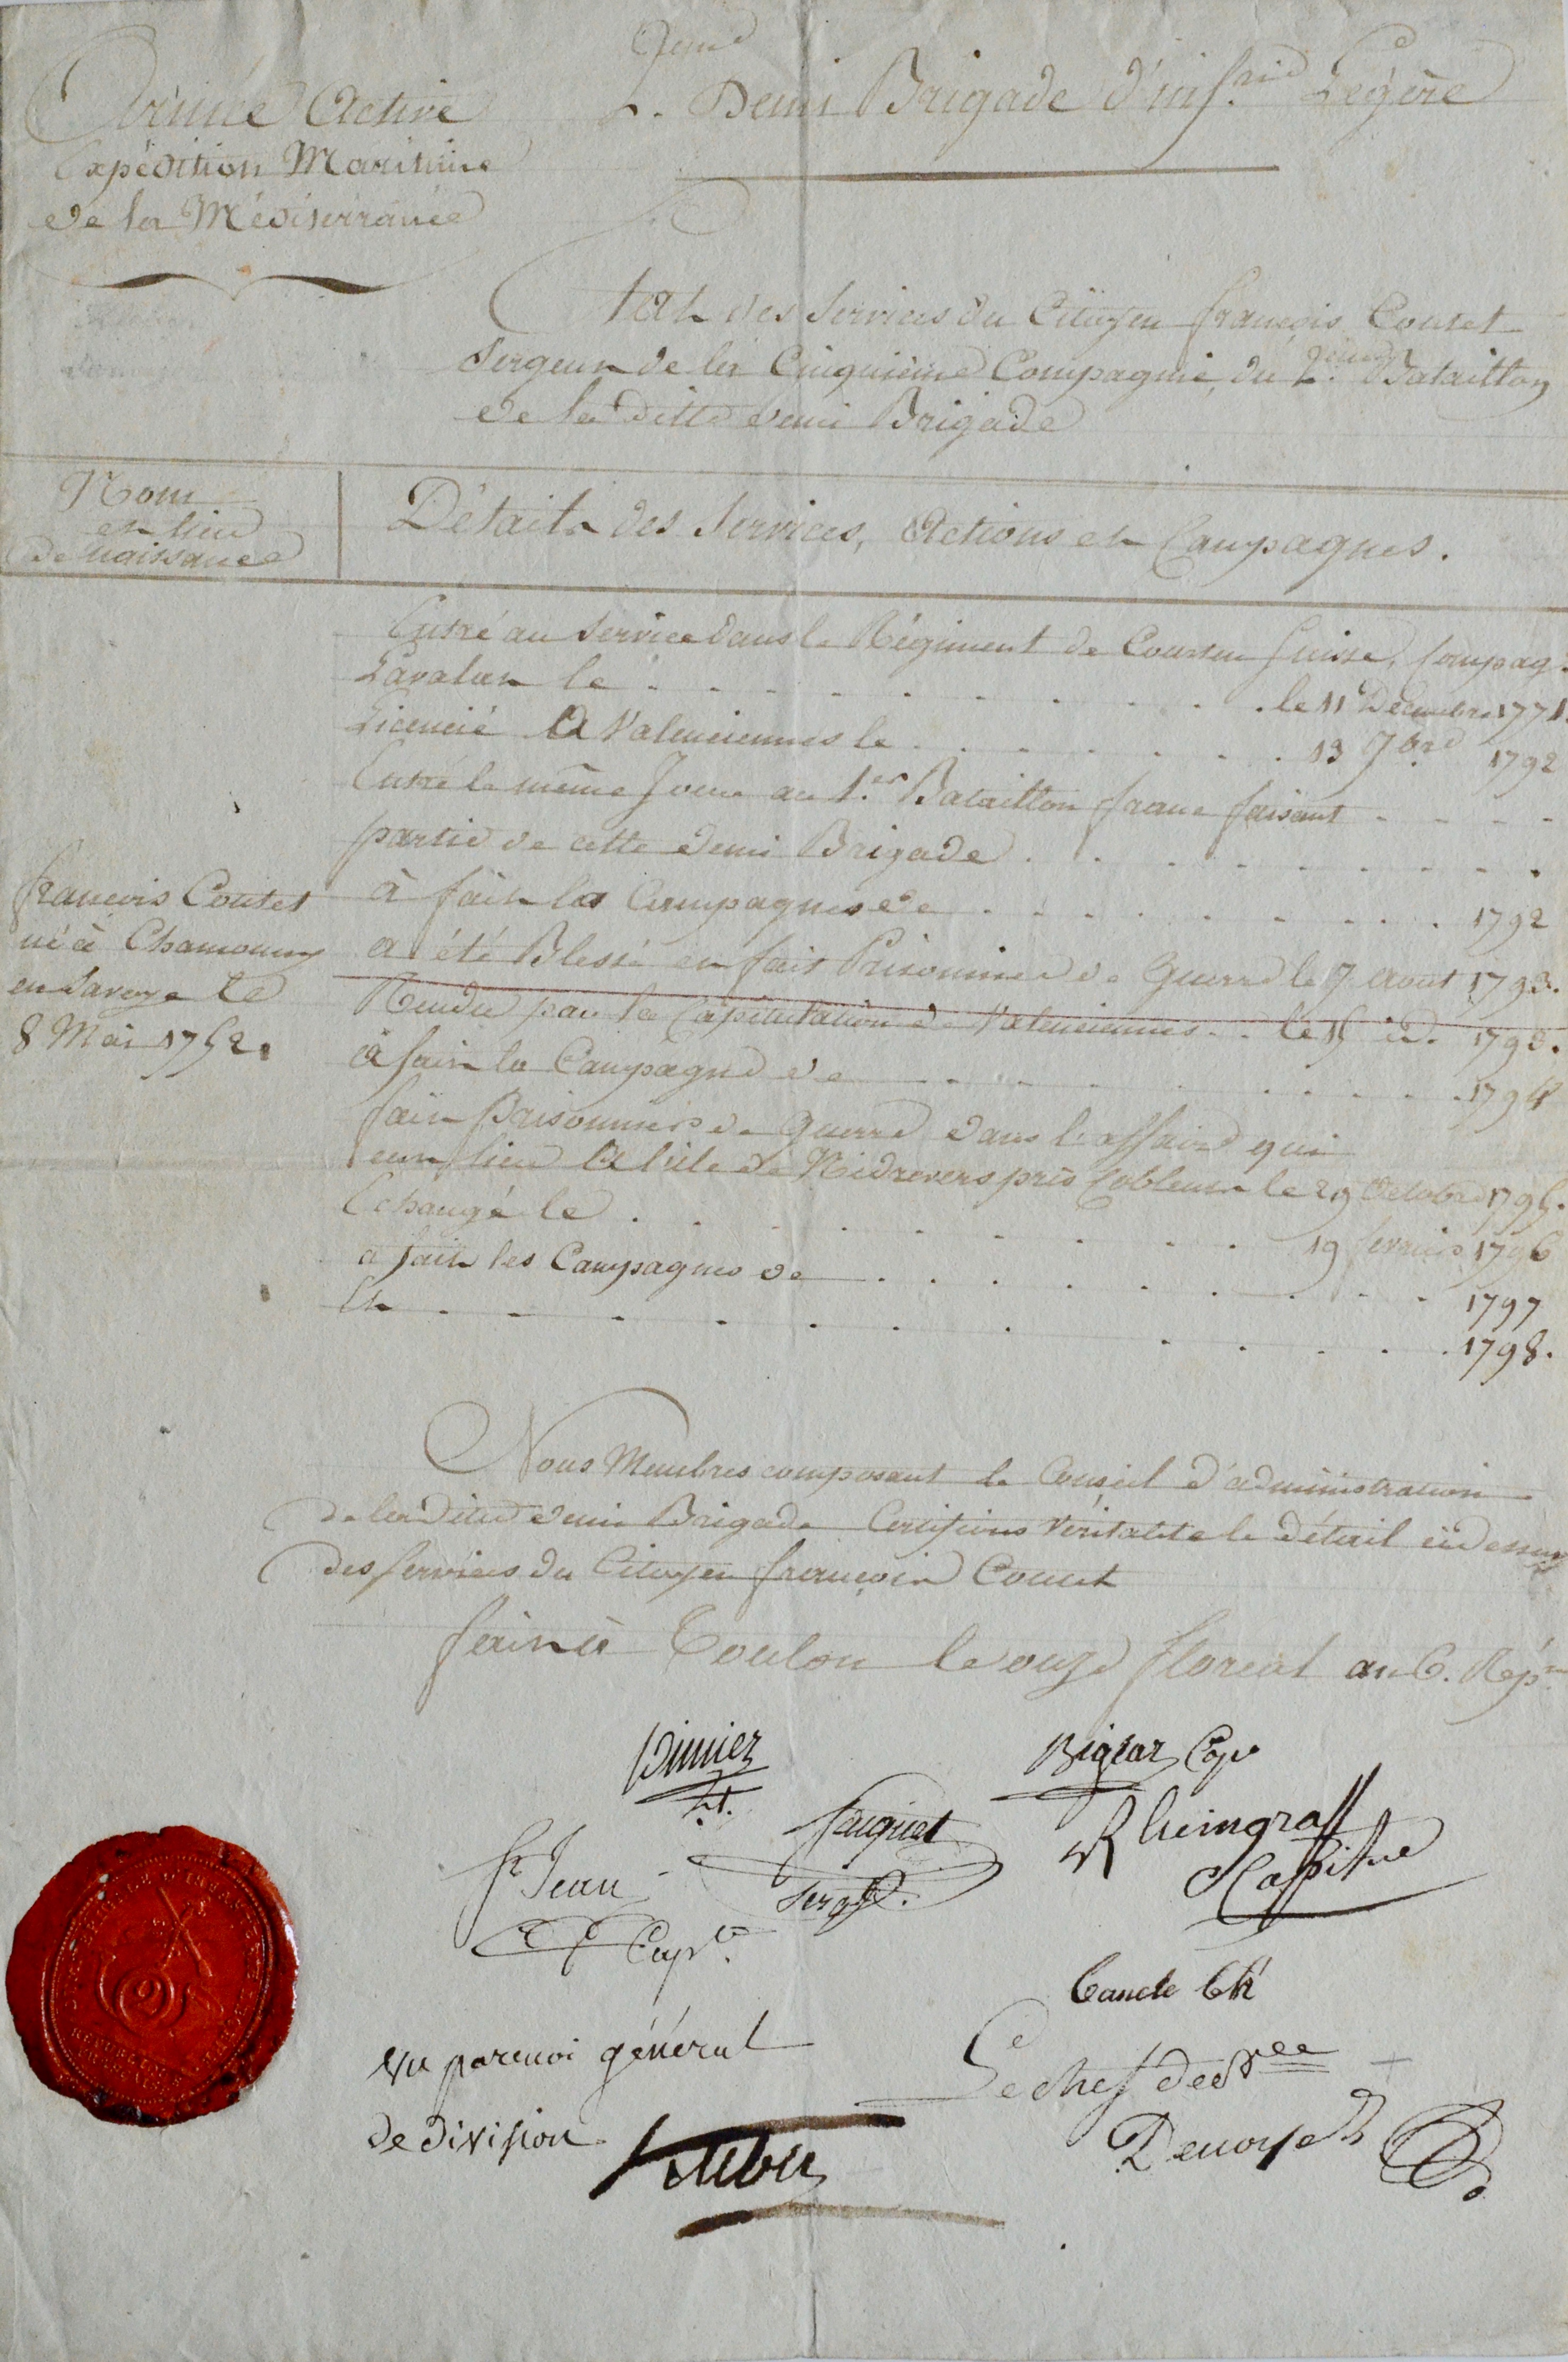 Armée Active
Expédition Maritime
de la Méditerranée
2eme
2. Demi Brigade d'inf.rie Légère
Etat des Services du Citoyen françois Coutet
Sergent de la Cinquiéme Compagnie, du 2.eme Bataillon
de la ditte demi Brigade
Nom
et lieu
de naissance
Détail des Services, Actions et Campagnes.
françois Coutet
né à Chamouny
en Savoye le
8 Mai 1752.
Entré au Service dans le Régiment de Courten Suisse, Compag.
le . . . . . . . . . . le 11 Decembre 1771
Licencié à Valenciennes le . . . . . . . 13 7bre 1792
Entré le même Jour au 1.er Bataillon franc faisant - - - -
partie de cette demi Brigade . . . . . . . . . .
à fait la Campagne de . . . . . . . . . 1792
a été Blessé et fait Prisonnier de Guerre le 7 Aout 1793.
Rendu par la Capitulation de Valenciennes . . le 15 id. 1793.
à fait la Campagne de . . . . . . . . 1794
fait Prisonnier de Guerre dans l'affaire qui
eut lieu à l'ile de Nidrevers près Coblence le 29 Octobre 1795.
Echangé le . . . . . . . . . 19 fevrier 1796
a fait les Campagnes de . . . . . . . . . 1797
Et . . . . . . . . . . . . 1798.
Nous Membres composant le Conseil d'administration
de la dite demi Brigade Certifions Véritable le détail ci dessus
des Services du Citoyen françois Coutet
fait à Toulon le onze floreal an 6. Rép.
Bigear Cap
St Jean
Cap.ne
Fauquet
Serg.
Rheingraff
Capitne
Vu par moi général
de division
Kleber
Le chef de Bde
Denoyé